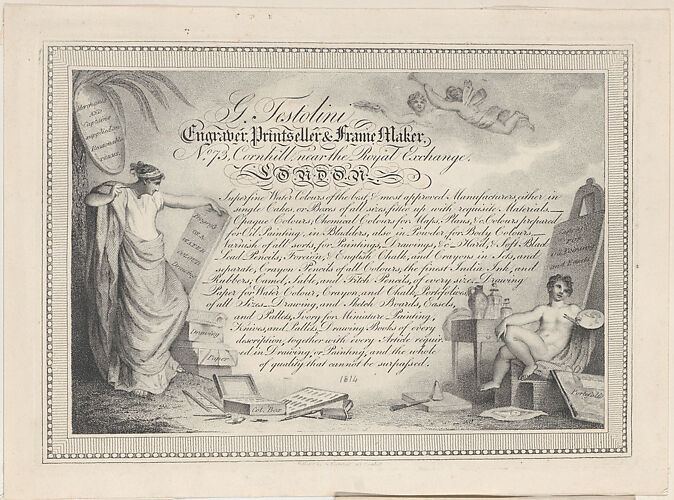 G. Testolini
Engraver, Printseller & Frame Maker,
No. 73, Cornhill, near the Royal Exchange.
LONDON
Superfine Water Colours of the best, & most approved Manufacturers, either in
single Cakes, or Boxes of all sizes, fitted up with requisite Materials
Opaque Colours, Chemical Colours for Maps, Plans, &c. Colours prepared
for Oil Painting, in Bladders, also in Powder for Body Colours
Varnish of all sorts, for Paintings, Drawings, &c. Hard, & Soft Black
Lead Pencils, Foreign, & English Chalk, and Crayons in Sets, and
separate, Crayon Pencils of all Colours, the finest India Ink, and
Rubbers, Camel, Sable, and Fitch Pencils, of every size. Drawing
Paper for Water Colour, Crayon, and Chalk, Portfolios
of all Sizes. Drawing, and Sketch Boards, Easels,
and Pallets, Ivory for Miniature Painting,
Knives, and Pallets, Drawing Books of every
description, together with every Article requir
ed in Drawing, or Painting, and the whole
of quality that cannot be surpassed.
1814
Merchants
AND
Captains
supplied on
Reasonable
terms.
Drawing
Paper
Col. Box
Portfolio
FOR
Oil Painting